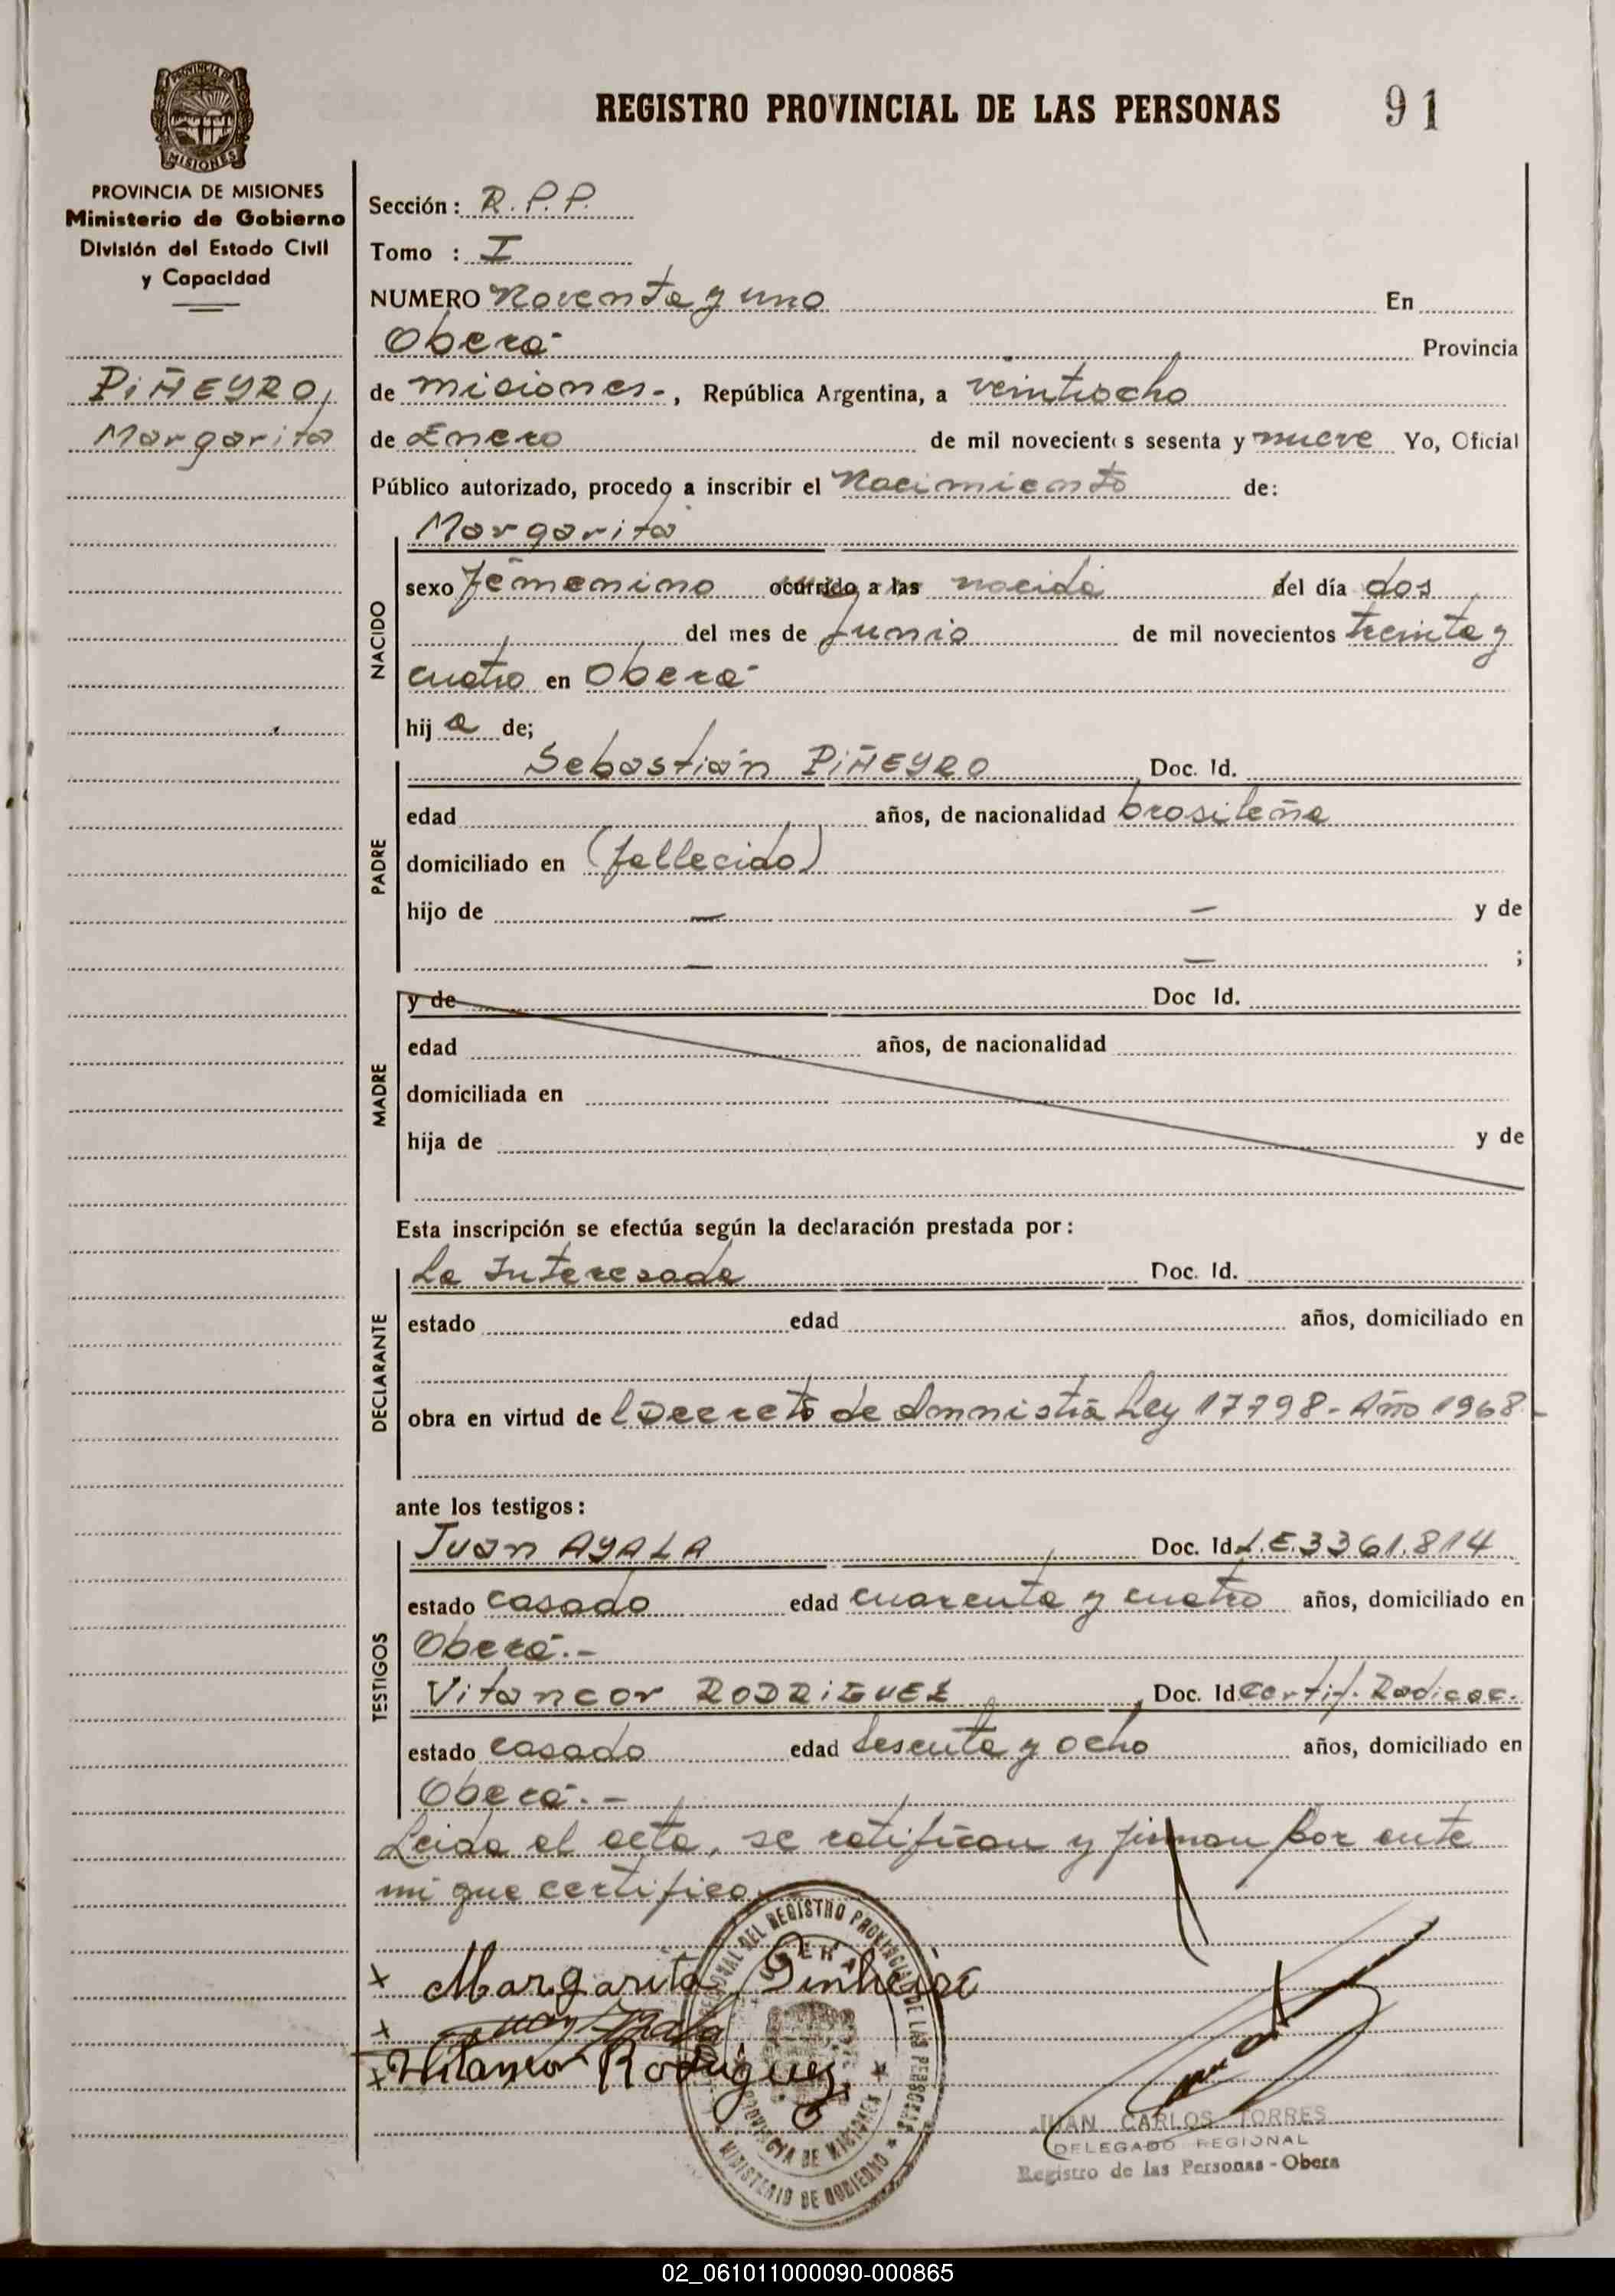 REGISTRO PROVINCIAL DE LAS PERSONAS 91
PROVINCIA DE MISIONES
Ministerio de Gobierno
División del Estado Civil
y Capacidad
PiÑEYRO,
Margarita
Sección: R.P.P.
Tomo : I
NUMERO Noventa y uno En
Oberá Provincia
de Misiones.-, República Argentina, a veintiocho
de Enero de mil novecientos sesenta y nueve Yo, Oficial
Público autorizado, procedo a inscribir el Nacimiento de:
NACIDO
Margarita
sexo femenino ocurrido a las nacida del día dos
del mes de Junio de mil novecientos treinta y
cuatro en Oberá
hija de;
PADRE
Sebastián PiÑEYRO Doc. Id.
edad años, de nacionalidad brasileña
domiciliado en (fallecido)
hijo de — — y de
— — ;
MADRE
y de Doc Id.
edad años, de nacionalidad
domiciliada en
hija de y de
Esta inscripción se efectúa según la declaración prestada por:
DECLARANTE
La Interesada Doc. Id.
estado edad años, domiciliado en
obra en virtud de Decreto de Amnistía Ley 17798 - Año 1968 -
ante los testigos:
TESTIGOS
Juan AYALA Doc. Id. L.E. 3361.814
estado casado edad cuarenta y cuatro años, domiciliado en
Oberá.-
Vitancor RODRiGUEZ, Doc. Id Certif. Radicac.
estado casado edad sesenta y ocho años, domiciliado en
Oberá.-
Leida el acta, se ratifican y firman por ante
mi que certifico.
x Margarita Pinheiro
x Juan Ayala
x Hilancor Rodriguez
REGIONAL DEL REGISTRO PROVINCIAL DE LAS PERSONAS
OBERA
PROVINCIA DE MISIONES
MINISTERIO DE GOBIERNO
JUAN CARLOS TORRES
DELEGADO REGIONAL
Registro de las Personas - Obera
02_061011000090-000865